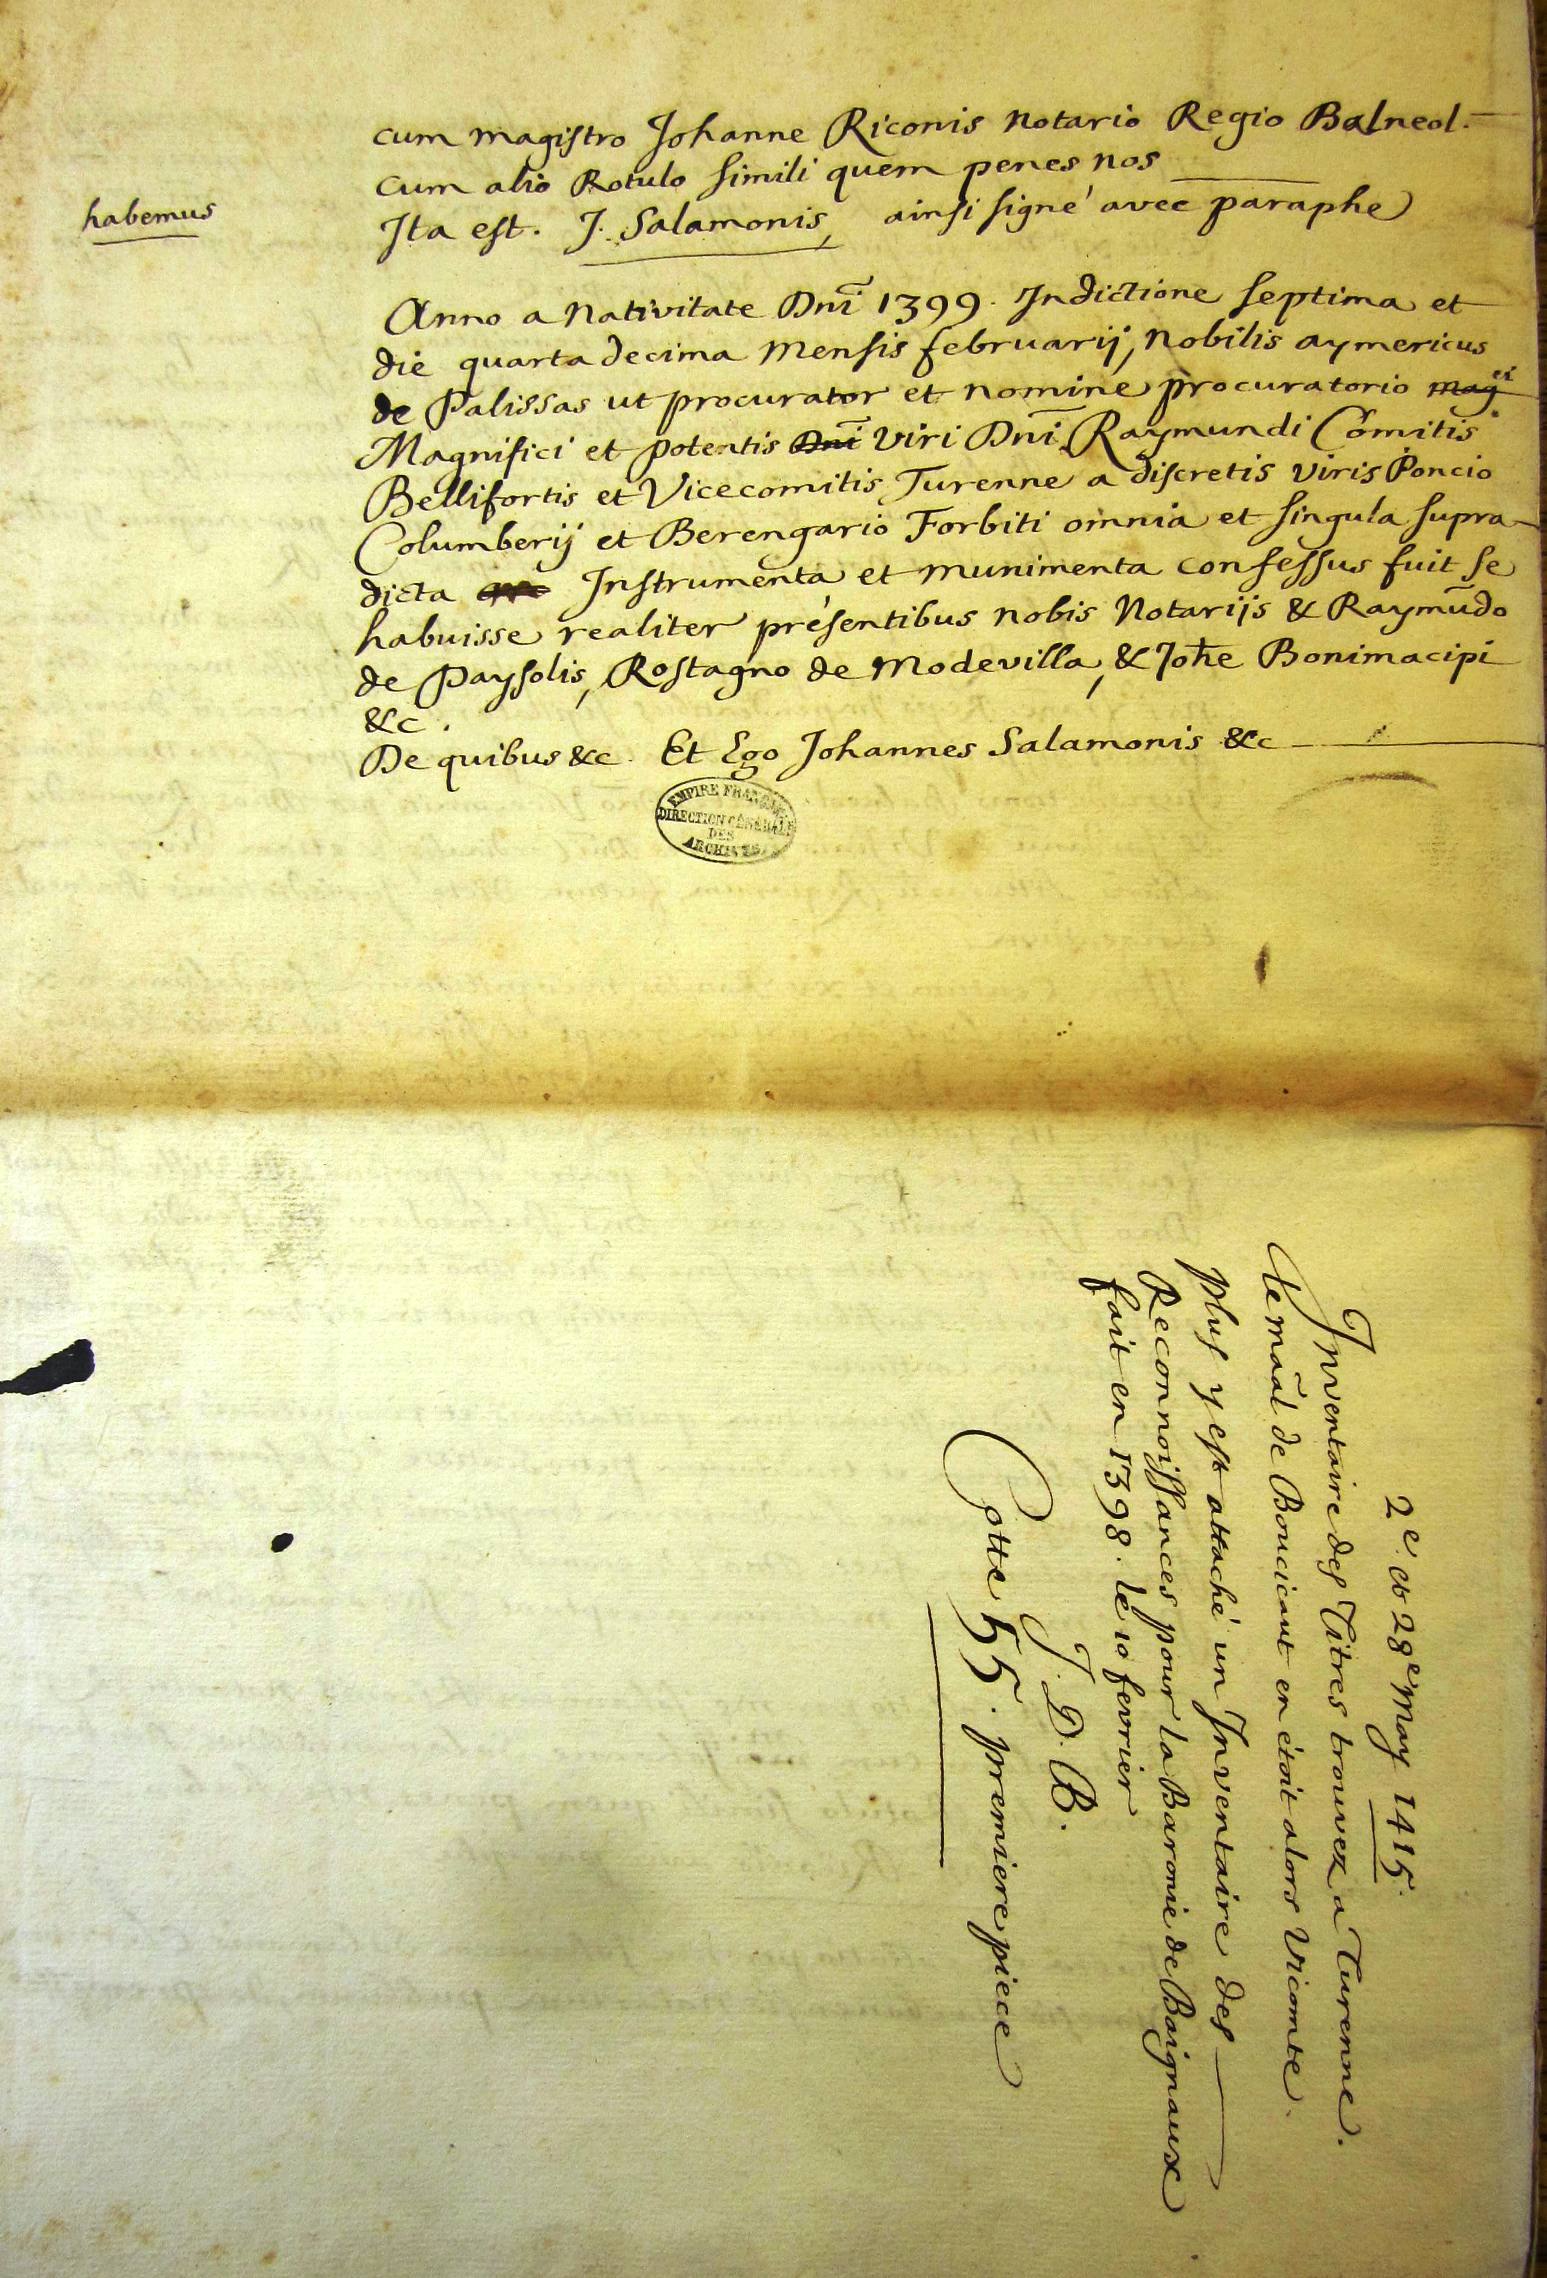 cum magistro Johanne Riconis notario Regio Balneol.
cum alio Rotulo simili quem penes nos
habemus
Ita est. J. Salamonis, ainsi signé avec paraphe
Anno a Nativitate Dnī 1399. Indictione septima et
die quarta decima mensis februarij, nobilis aymericus
de Palissas ut procurator et nomine procuratorio
Magnifici et potentis Dnī viri Dnī Raymundi Comitis
Bellifortis et Vicecomitis Turenne a discretis viris Poncio
Columberij et Berengario Forbiti omnia et singula supra-
dicta Instrumenta et munimenta confessus fuit se
habuisse realiter présentibus nobis Notarijs & Raymūdo
de Paysolis, Rostagno de Modevilla, & Johē Bonimacipi
&c.
De quibus &c. Et Ego Johannes Salamonis &c
EMPIRE FRANÇAIS
DIRECTION GÉNÉRALE
DES
ARCHIVES
2e. et 28e May 1415.
Inventaire des Titres trouvez a Turenne.
Le māal de Boucicaut en étoit alors Vicomte.
Plus y est attaché un Inventaire des
Reconnoissances pour la Baronie de Baignaux
fait en 1398. le 10 fevrier
J. D. B.
Cotte 55. premiere piece